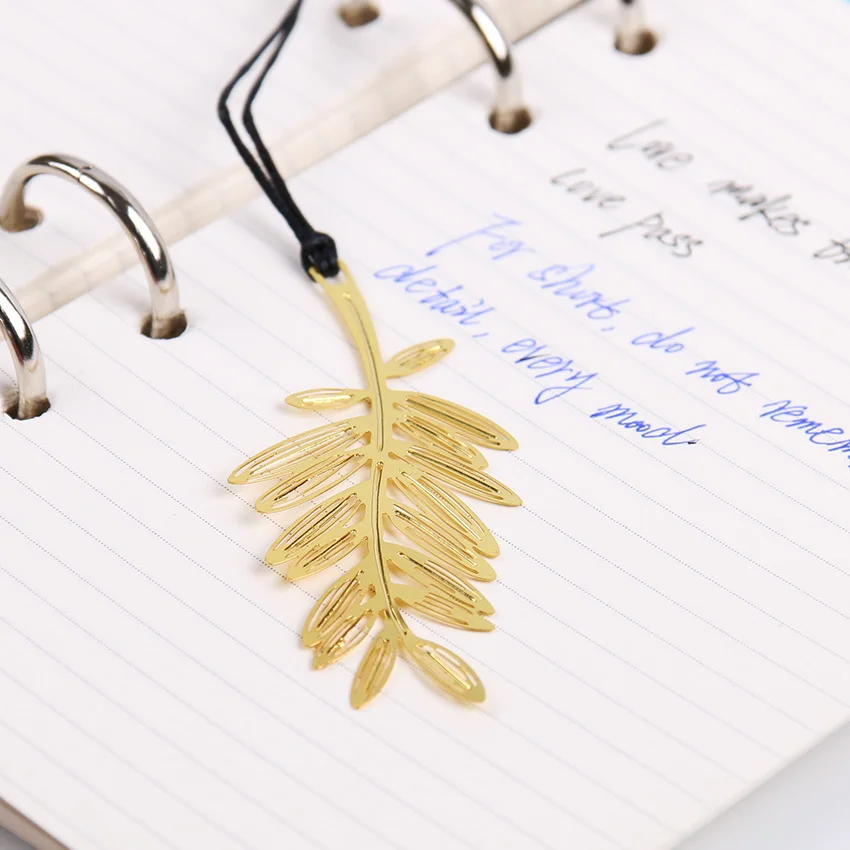 Love makes
Love pass
For short, do not remem
detail, every mood.